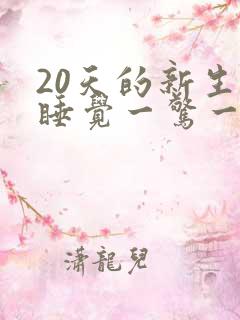 20天的新生
睡覺一驚一
瀟龍兒